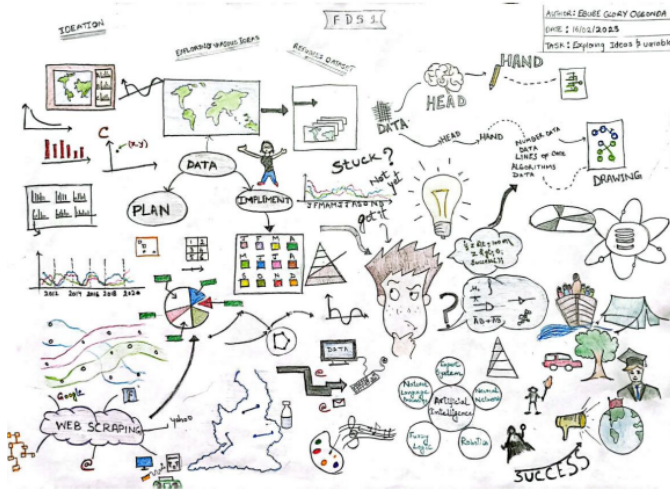 FDS1
AUTHOR: EBUBE GLORY OGBONDA
DATE: 16/02/2025
TASK: Exploring Ideas & variable
IDEATION
EXPLORING VARIOUS IDEAS
REFUGEES DATASET
C
(x,y)
DATA
PLAN
IMPLEMENT
HEAD
HAND
DATA
HEAD
HAND
NUMBER DATA
DATA
LINES OF CODE
ALGORITHMS
DATA
DRAWING
Stuck?
Not yet
got it
?
J F M A M J J A S O N D
J F M A
M J J A
S O N D
2012 2014 2016 2018 2020
?
DATA
@
@
Google
Yahoo
WEB SCRAPING
@
Input System
Natural Language
Neural Network
Artificial Intelligence
Fuzzy Logic
Robotics
SUCCESS